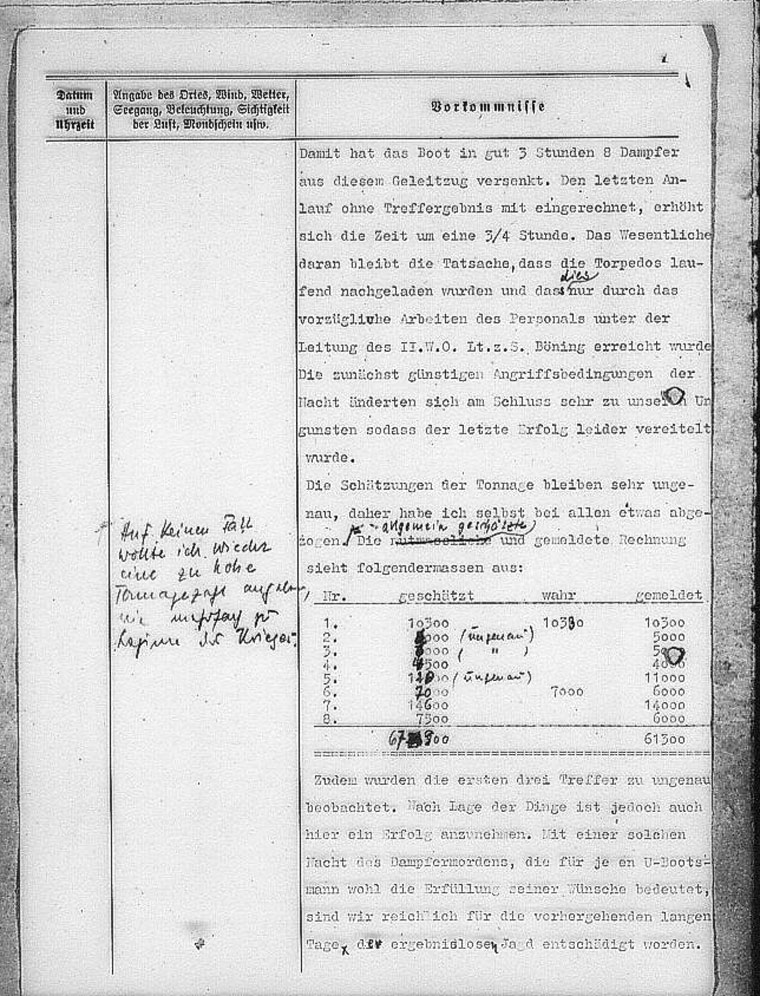 Datum
und
Uhrzeit
Angabe des Ortes, Wind, Wetter,
Seegang, Beleuchtung, Sichtigkeit
der Luft, Mondschein usw.
Vorkommnisse
Damit hat das Boot in gut 3 Stunden 8 Dampfer
aus diesem Geleitzug versenkt. Den letzten An-
lauf ohne Treffergebnis mit eingerechnet, erhöht
sich die Zeit um eine 3/4 Stunde. Das Wesentliche
daran bleibt die Tatsache, dass die Torpedos lau-
dies
fend nachgeladen wurden und dass nur durch das
vorzügliche Arbeiten des Personals unter der
Leitung des II.W.O. Lt.z.S. Böning erreicht wurde
Die zunächst günstigen Angriffsbedingungen der
Nacht änderten sich am Schluss sehr zu unseren Un
gunsten sodass der letzte Erfolg leider vereitelt
wurde.
Die Schätzungen der Tonnage bleiben sehr unge-
nau, daher habe ich selbst bei allen etwas abge-
allgemein geschätzte
zogen. Die mutmassliche und gemeldete Rechnung
sieht folgendermassen aus:
Auf keinen Fall
wollte ich wieder
eine zu hohe
Tonnagezahl angeben,
wie
Beginn des Krieges.
Nr. geschätzt wahr gemeldet
1. 10300 10330 10300
2. 000 (ungenau) 5000
3. 000 ( " )
4. 500
5. (ungenau) 11000
6. 7000 7000 6000
7. 14600 14000
8. 7500 6000
61300
Zudem wurden die ersten drei Treffer zu ungenau
beobachtet. Nach Lage der Dinge ist jedoch auch
hier ein Erfolg anzunehmen. Mit einer solchen
Nacht des Dampfermordens, die für jeden U-Boots-
mann wohl die Erfüllung seiner Wünsche bedeutet,
sind wir reichlich für die vorhergehenden langen
Tage der ergebnislosen Jagd entschädigt worden.